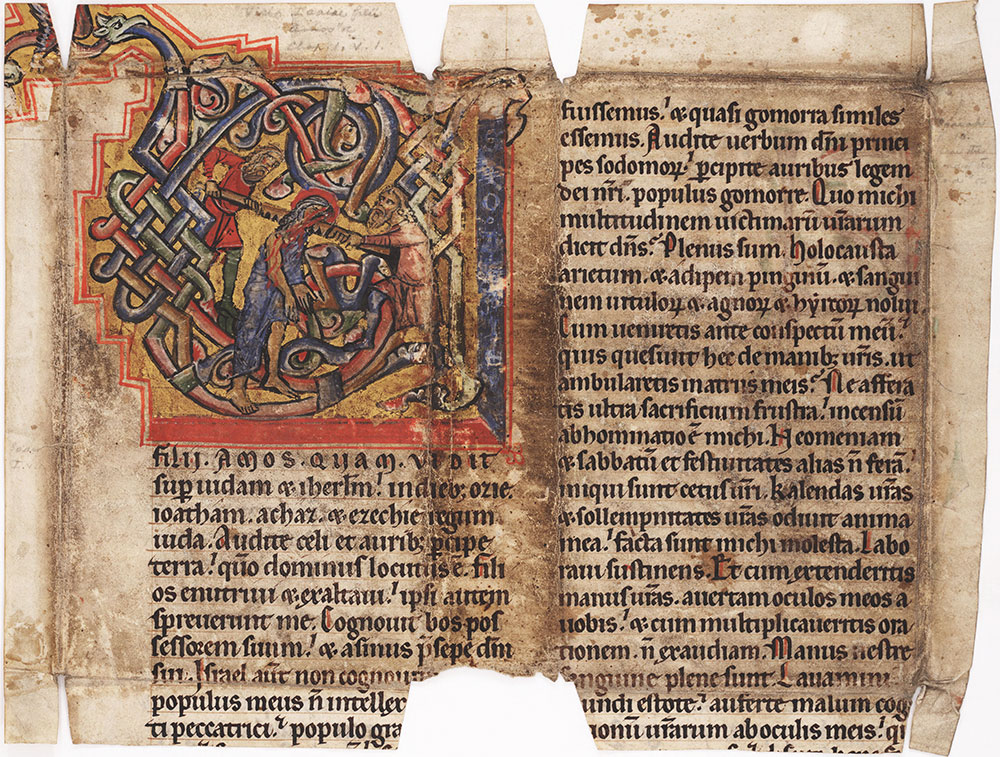 filii. AMOS. QUAM. VIDIT
sup iudam & iherl'm. in dieb; ozie.
ioatham. achaz. & ezechie regum
iuda. Audite celi et aurib; p̄cipe
terra. q̄uo dominus locutus ē. fili
os enutriui & exaltaui. ipsi autem
spreuerunt me. Cognouit bos pos
sessorem suum. & asinus p̄sepe dn̄i
sui. Israel aūt non cognouit
populus meus n̄ intellex
ti peccatrici. populo gra
fuissemus. & quasi gomorra similes
essemus. Audite uerbum dn̄i princi
pes sodomoꝝ. p̄cipite auribus legem
dei nr̄i. populus gomorre. Quo michi
multitudinem uictimarū ur̄arum
dicit dn̄s. Plenus sum. holocausta
arietum. & adipem pinguiū. & sangui
nem uituloꝝ & agnoꝝ & hyrcoꝝ nolui.
Cum ueniretis ante conspectū meū.
quis quesiuit hec de manib; ur̄is. ut
ambularetis in atriis meis. Ne affera
tis ultra sacrificium frustra. incensū
abhominatio ē michi. Neomeniam
& sabbatū et festiuitates alias n̄ ferā.
iniqui sunt cetus ur̄i. kalendas ur̄as
& sollempnitates ur̄as odiuit anima
mea. facta sunt michi molesta. Labo
raui sustinens. Et cum extenderitis
manus ur̄as. auertam oculos meos a
uobis. & cum multiplicaueritis ora
tionem. n̄ exaudiam. Manus uestre
sanguine plene sunt. Lauamini
mundi estote. auferte malum cog
ionū ur̄arum ab oculis meis.